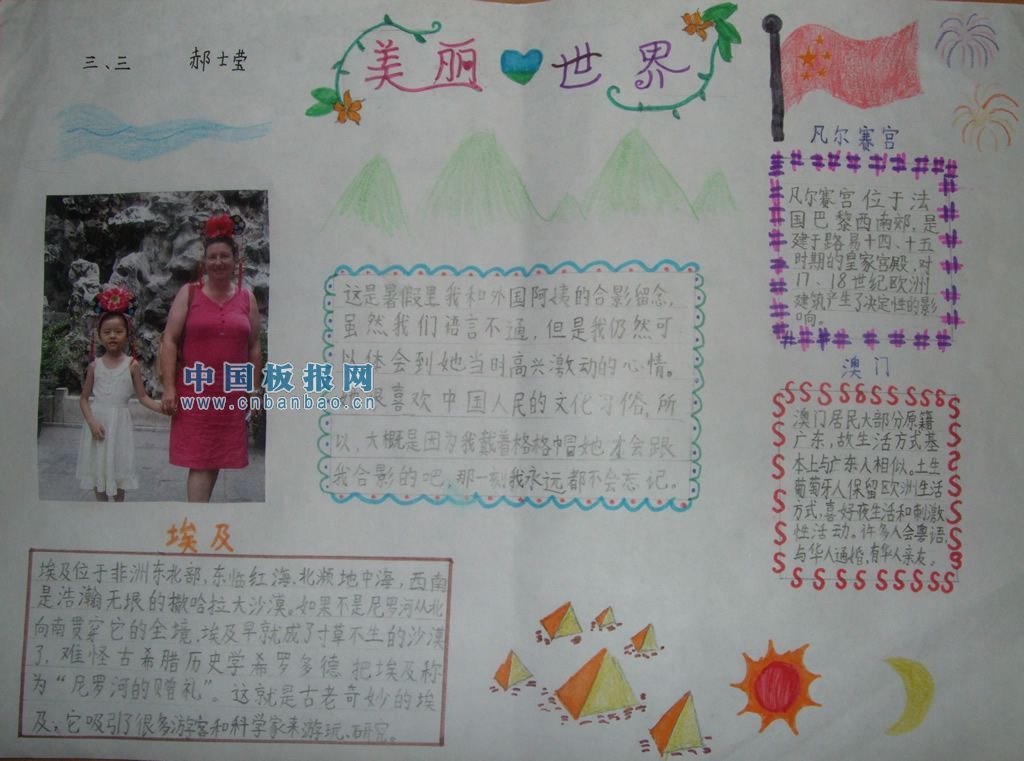 三、三 郝士莹
美丽世界
凡尔赛宫
凡尔赛宫位于法
国巴黎西南郊,是
建于路易十四、十五
时期的皇家宫殿,对
17、18世纪欧洲
建筑产生了决定性的影
响。
这是暑假里我和外国阿姨的合影留念,
虽然我们语言不通,但是我仍然可
以体会到她当时高兴激动的心情。
很喜欢中国人民的文化习俗,所
以,大概是因为我戴着格格帽她才会跟
我合影的吧,那一刻我永远都不会忘记。
中国板报网
www.cnbanbao.cn
澳门
澳门居民大部分原籍
广东,故生活方式基
本上与广东人相似。土生
葡萄牙人保留欧洲生活
方式,喜好夜生活和刺激
性活动。许多人会粤语,
与华人通婚,有华人亲友。
埃及
埃及位于非洲东北部,东临红海,北濒地中海,西南
是浩瀚无垠的撒哈拉大沙漠。如果不是尼罗河从北
向南贯穿它的全境,埃及早就成了寸草不生的沙漠
了,难怪古希腊历史学希罗多德把埃及称
为“尼罗河的赠礼”。这就是古老奇妙的埃
及,它吸引了很多游客和科学家来游玩、研究。